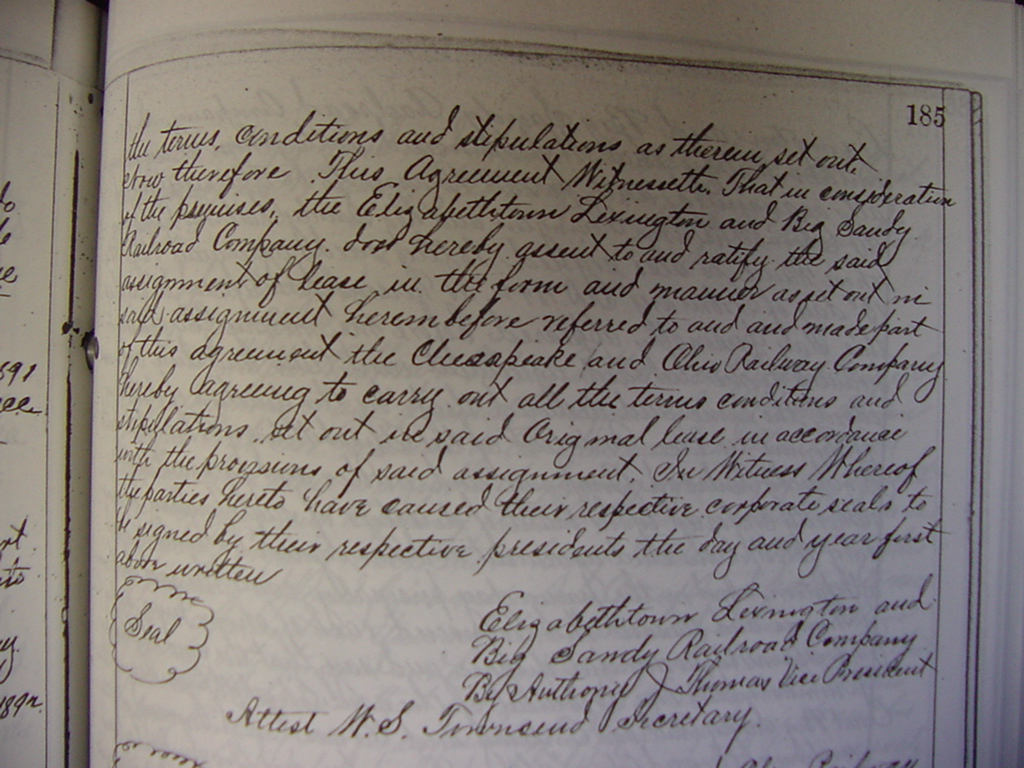 185
the terms, conditions and stipulations as therein set out,
Now therefore This Agreement Witnesseth. That in consideration
of the premises, the Elizabethtown Lexington and Big Sandy
Railroad Company. does hereby assent to and ratify the said
assignment of lease in the form and manner as set out in
said assignment hereinbefore referred to and and made part
of this agreement the Chesapeake and Ohio Railway Company
hereby agreeing to carry out all the terms conditions and
stipulations set out in said Original lease in accordance
with the provisions of said assignment. In Witness Whereof
the parties hereto have caused their respective corporate seals to
be signed by their respective presidents the day and year first
above written
Seal
Elizabethtown Lexington and
Big Sandy Railroad Company
By Anthony J Thomas Vice President
Attest W. S. Townsend Secretary.
Railway